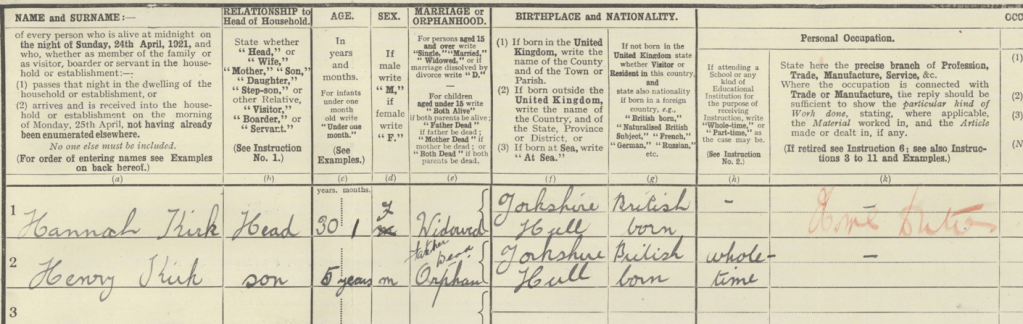 NAME and SURNAME:—
of every person who is alive at midnight on
the night of Sunday, 24th April, 1921, and
who, whether as member of the family or
as visitor, boarder or servant in the house-
hold or establishment:—
(1) passes that night in the dwelling of the
household or establishment, or
(2) arrives and is received into the house-
hold or establishment on the morning
of Monday, 25th April, not having already
been enumerated elsewhere.
No one else must be included.
(For order of entering names see Examples
on back hereof.)
(a)
RELATIONSHIP to
Head of Household.
State whether
"Head," or
"Wife,"
"Mother," "Son,"
"Daughter,"
"Step-son," or
other Relative,
"Visitor,"
"Boarder," or
"Servant."
(See Instruction
No. 1.)
(b)
AGE.
In
years
and
months.
For infants
under one
month
old write
"Under one
month."
(See
Examples.)
(c)
SEX.
If
male
write
"M,"
if
female
write
"F."
(d)
MARRIAGE or
ORPHANHOOD.
For persons aged 15
and over write
"Single," "Married,"
"Widowed," or if
marriage dissolved by
divorce write "D."
For children
aged under 15 write
"Both Alive"
if both parents be alive;
"Father Dead"
if father be dead;
"Mother Dead" if
mother be dead; or
"Both Dead" if both
parents be dead.
(e)
BIRTHPLACE and NATIONALITY.
(1) If born in the United
Kingdom, write the
name of the County
and of the Town or
Parish.
(2) If born outside the
United Kingdom,
write the name of
the Country, and of
the State, Province
or District, or
(3) If born at Sea, write
"At Sea."
(f)
If not born in the
United Kingdom state
whether Visitor or
Resident in this country,
and
state also nationality
if born in a foreign
country, e.g.,
"British born,"
"Naturalised British
Subject," "French,"
"German," "Russian,"
etc.
(g)
If attending a
School or any
kind of
Educational
Institution for
the purpose of
receiving
Instruction, write
"Whole-time," or
"Part-time," as
the case may be.
(See Instruction
No. 2.)
(h)
OCC
Personal Occupation.
State here the precise branch of Profession,
Trade, Manufacture, Service, &c.
Where the occupation is connected with
Trade or Manufacture, the reply should be
sufficient to show the particular kind of
Work done, stating, where applicable,
the Material worked in, and the Article
made or dealt in, if any.
(If retired see Instruction 6; see also Instruc-
tions 3 to 11 and Examples.)
(k)
(1)
(2)
(3)
(N
years. months.
1 Hannah Kirk Head 30 1 F m Widowed Yorkshire Hull British born - Home Duties
2 Henry Kirk son 5 years m Father Dead Orphan Yorkshire Hull British born whole-time -
3